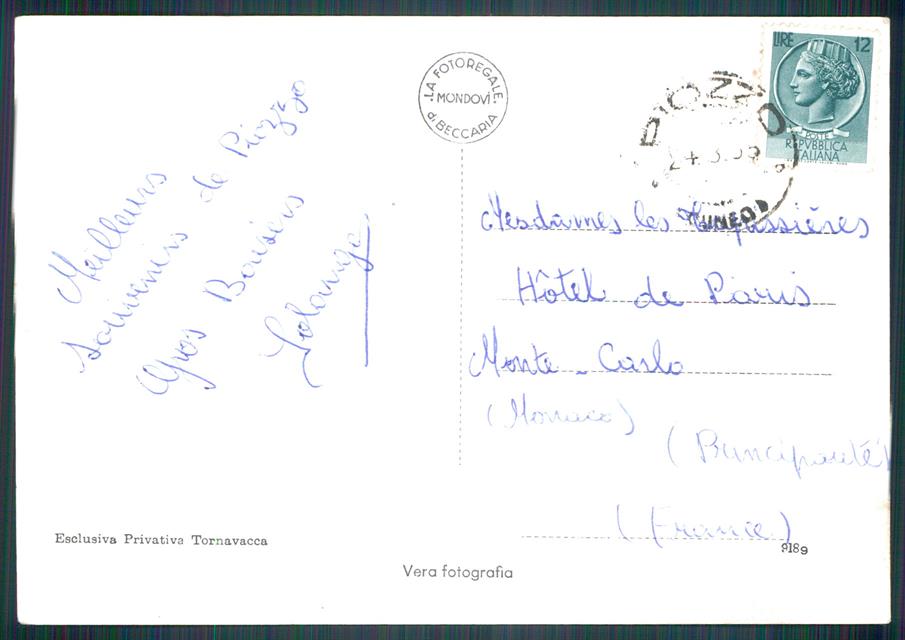 Meilleurs
souvenirs de Piozzo
Gros Baisers
Solange
LA FOTOREGALE
MONDOVÌ
di BECCARIA
PIOZZO
CUNEO
LIRE 12
POSTE
REPVBBLICA
ITALIANA
Mesdames les Tapissières
Hôtel de Paris
Monte-Carlo
(Monaco)
(Principauté)
(France)
Esclusiva Privativa Tornavacca
9189
Vera fotografia